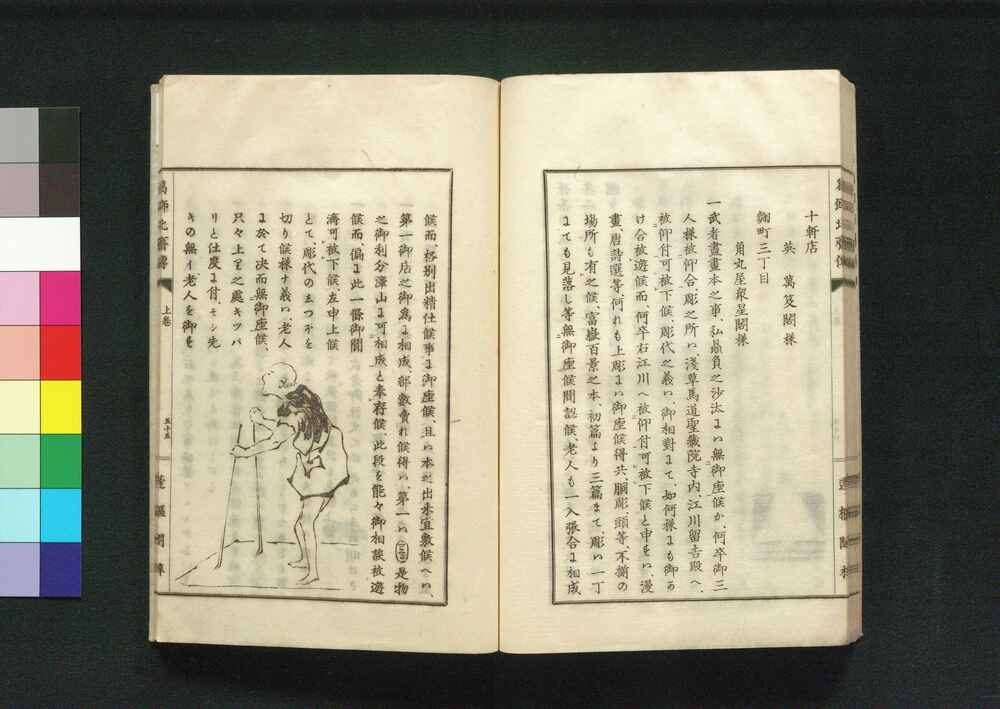 十軒店
英 萬笈閣様
麹町三丁目
角丸屋衆星閣様
一武者畫畫本之事、弘贔負之沙汰よハ無御座候か、何卒御三
人様被仰合、彫之所ハ淺草馬道聖藏院寺内、江川留吉殿へ、
被仰付可被下候、彫代之義ハ、御相對よて、如何様よも御
け合被遊候而、何卒右江川へ被仰付可被下候と申をハ、漫
畫、唐詩選等、何れも上彫よハ御座候得共、胴彫、頭等、不揃の
場所も有之候、富嶽百景之本、初篇より三篇まて、彫ハ一丁
よても見落し等無御座候間認候、老人も一入張合よ相成
候而、格別出精仕候事よ御座候、且ハ本之出來宜敷候へハ、
第一御店之御爲よ相成、部數賣れ候得ハ、第一ハ 是物
之御利分澤山よ可相成と奉存候、此段を能々御相談被遊
候而、偏よ此一條御聞
濟可被下候、左申上候
とて、彫代の上つ不を
切り候様ナ義ハ、老人
よ於て决而無御座候、
只々上軍之處キツパ
リと仕度よ付、モシ先
キの無イ老人を御を
葛飾北齋傳
上卷
五十五
蓬樞閣梓